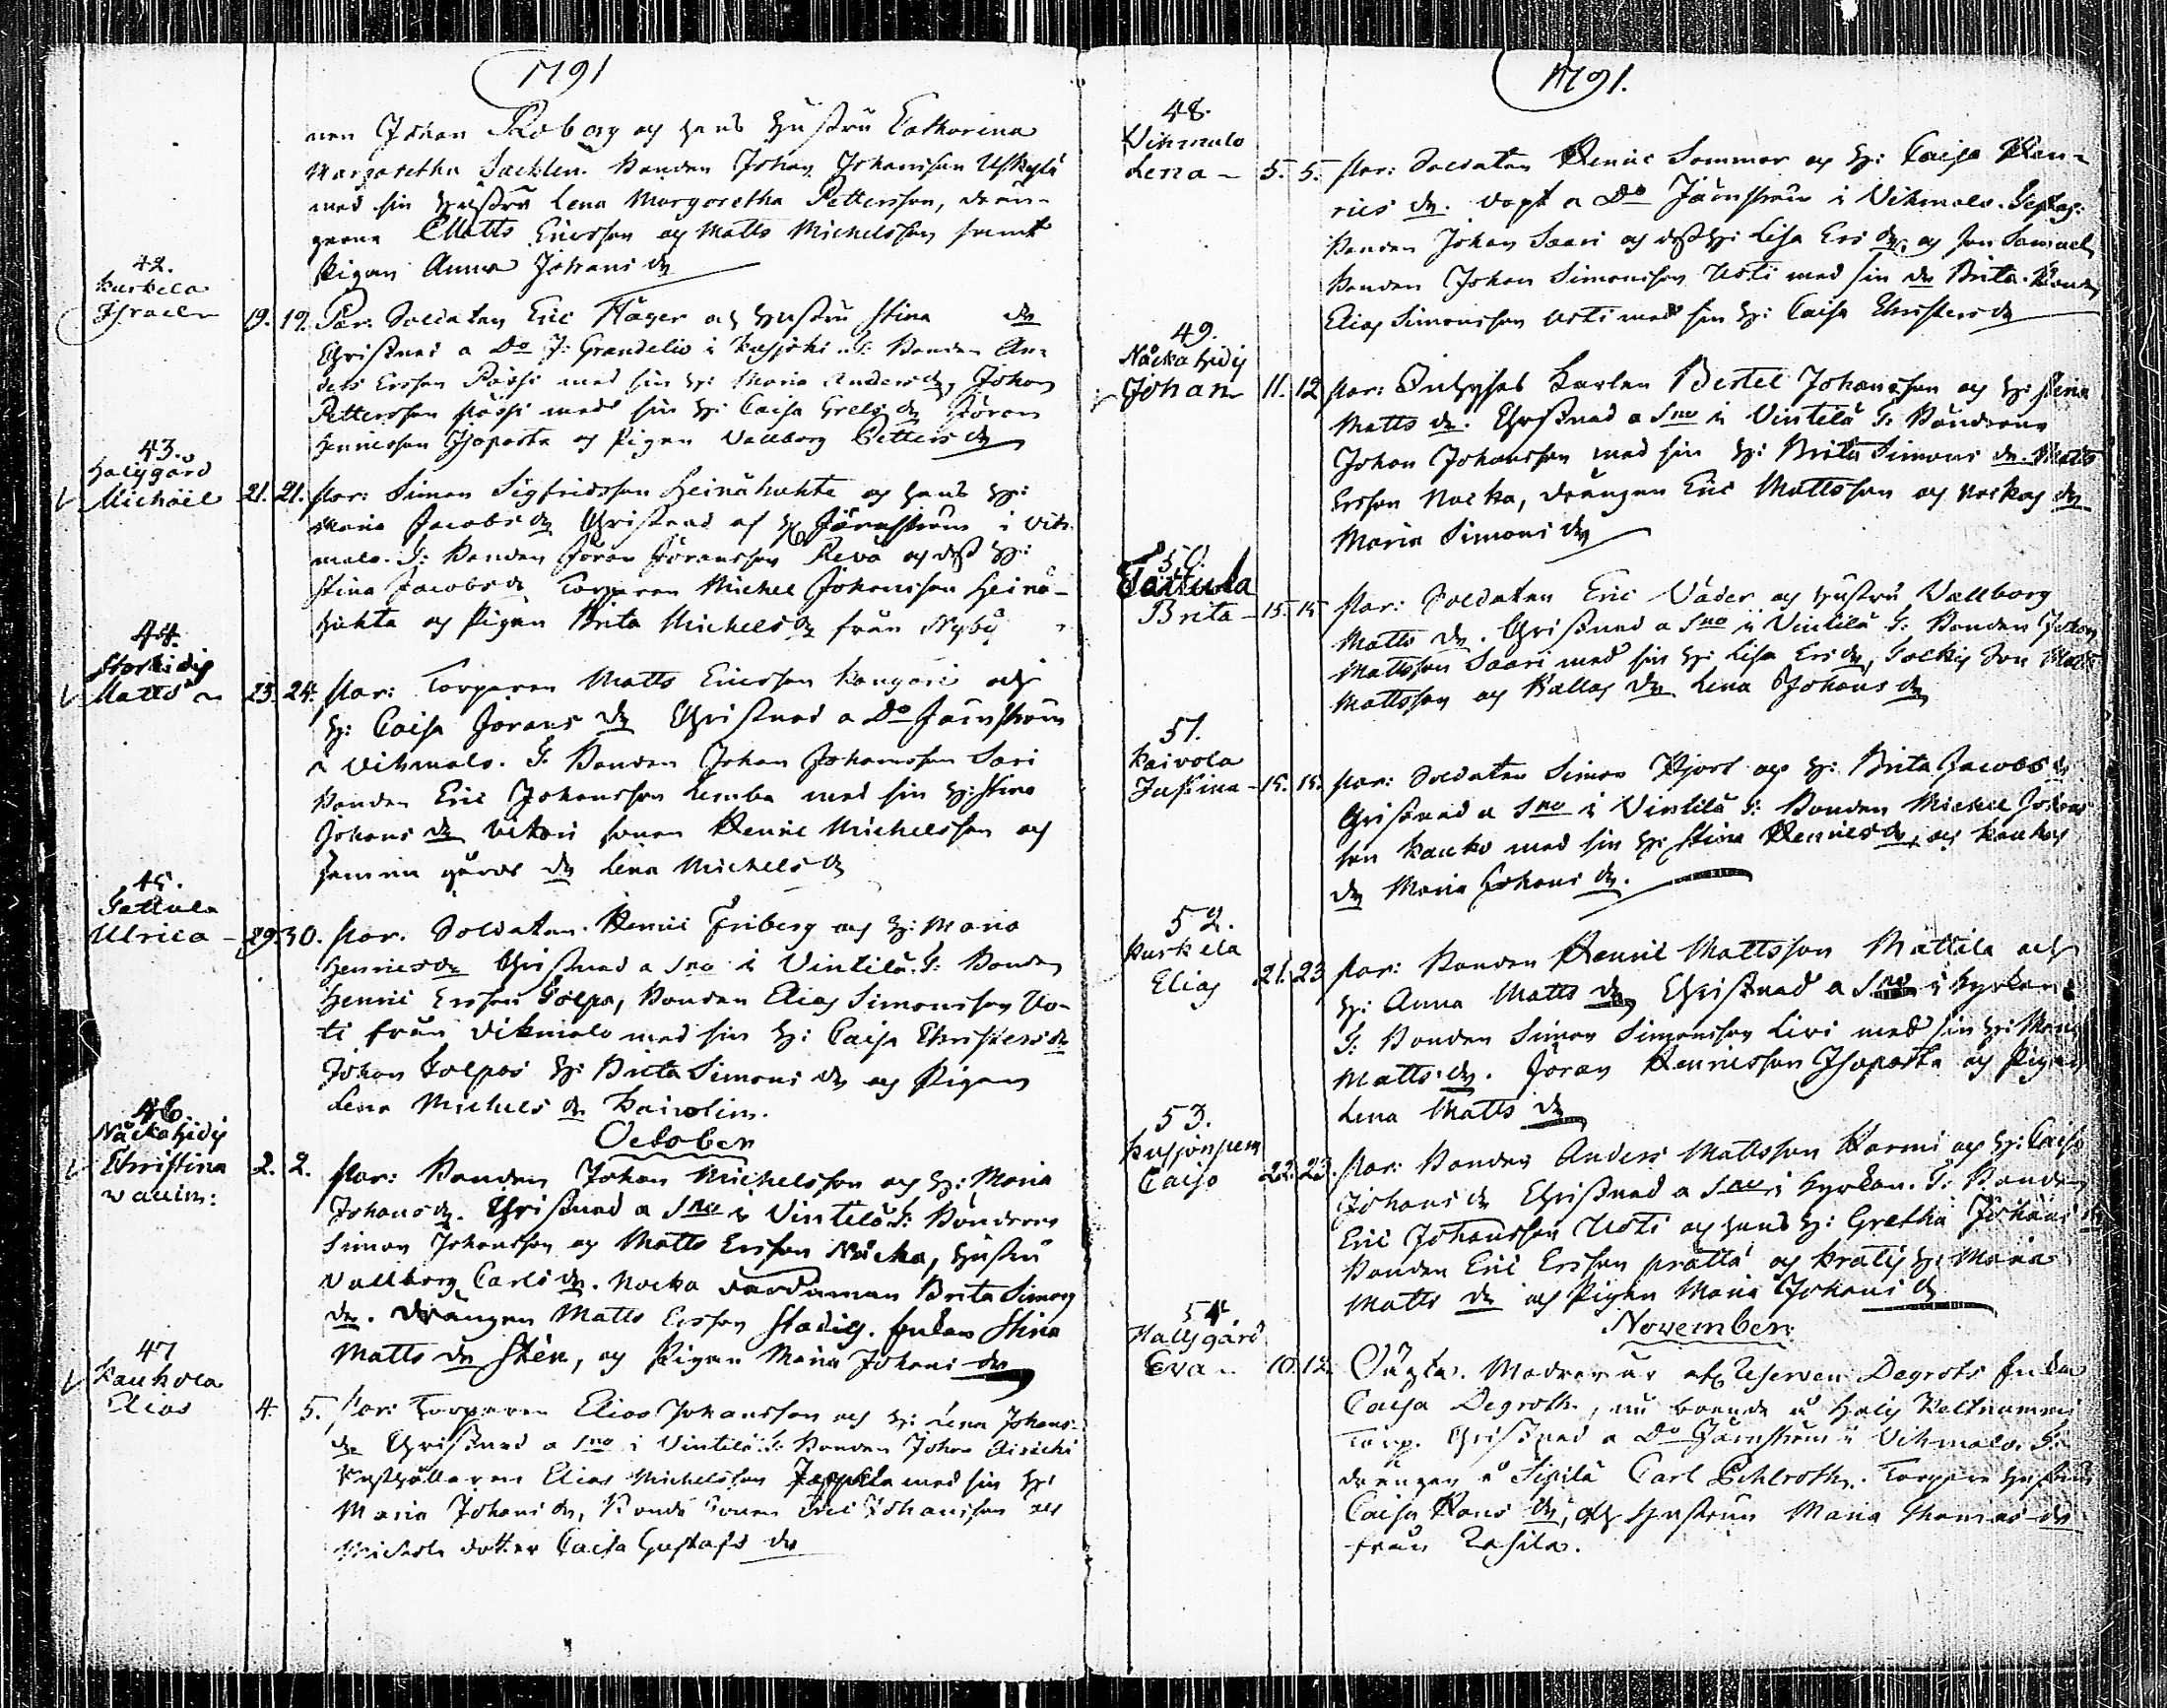 1791
nen Johan Roberg och hans hustru Catharina
Margaretha Sacklen. Bonden Johan Johansson Uskylä
med sin hustru Lena Margaretha Pettersson, drän-
garne Matts Ericsson och Matts Michelsson samt
Pigan Anna Johans dr
42.
Kurkela
Israel
19. 19. Par: Soldaten Eric Häger och hustru Stina dr
Christnad a Do J: Grandelio i Kusjoki. S: Bonden An-
ders Ersson Pässi med sin h: Maria Anders dr, Johan
Pettersson Pässi med sin h: Caisa Grels dr Jöran
Henricsson Isoparta och Pigan Vallborg Petters dr
43.
Haligård
Michäel 21. 21. Par: Simon Sigfridsson Heinähuhta och hans h:
Maria Jacobs dr Christnad af H Järnström i Vih-
malo. S: Bonden Jöran Jöransson Reva och dess h:
Stina Jacobs dr Torparen Michel Johansson Heinä-
huhta och Pigan Brita Michels dr från Nyby
44.
Storhidis
Matts 23. 24. Par: Torparen Matts Ericsson Kangari och
h: Caisa Jörans dr Christnad a Do Järnström
i Vihmalo. S. Bonden Johan Johansson Sari
Bonden Eric Johansson Lemba med sin h: Stina
Johans dr Uckari sonen Henric Michelsson och
gårds dr Lena Michels dr
45.
Tattula
Ulrica 29. 30. Par. Soldaten Henric Friberg och h: Maria
Henrics dr Christnad a Sno i Vintilä. S: Bonden
Henric Ersson Tolpo, Bonden Elias Simonsson Us-
ti från Vihmalo med sin h: Caisa Christers dr
Johan Tolpos h: Brita Simons dr och Pigan
Lena Michels dr Kaivolin.
October
46.
Näckahidis
Christina 2. 2. Par: Bonden Johan Michelsson och h: Maria
Johans dr. Christnad a Sno i Vintilä S: Bönderne
Simon Johansson och Matts Ersson Näcka, hustru
Vallborg Carls dr. Nocka Brita Simons
dr. Drängen Matts Ersson Stadig. Enkan Stina
Matts dr Stén, och Pigan Maria Johans dr
47
Kauhola
Elias 4. 5. Par: Torparen Elias Johansson och h: Lena Johans
dr Christnad a Sno i Vintilä. S: Bonden Johan
Elias Michelsson Jappila med sin h:
Maria Johans dr, Bonde sonen Eric Johansson och
dotter Caisa Gustafs dr
1791.
48.
Vihmalo
Lena 5. 5. Par: Soldaten Henric Sommar och h: Caisa Hen-
rics dr. döpt a Do Järnström i Vihmalo.
Bonden Johan Saari och dess h: Lisa Ers dr. och son Samuel
Bonden Johan Simonsson Usti med sin dr Brita. Bonden
Elias Simonsson Usti med sin h: Caisa Christers dr
49.
Näckahidis
Johan 11. 12 Par: Inhyses Karlen Bertel Johansson och h: Stina
Matts dr. Christnad a Sno i Vintilä S: Bönderne
Johan Johansson med sin h: Brita Simons dr. Matts
Ersson Nocka, drängen Eric Mattsson och Nockas dr
Maria Simons dr
50.
Tattula
Brita 15. 15 Par: Soldaten Eric Väder och hustru Vallborg
Matts dr. Christnad a Sno i Vintilä S: Bonden Johan
Mattsson Saari med sin h: Lisa Ers dr, Son Matts
Mattsson och dr Lena Johans dr
51.
Kaivola
Justina 15. 15. Par: Soldaten Simon Hjort och h: Brita Jacobs dr
Christnad a Sno i Vintilä S: Bonden Michel Johans
son Kauko med sin h: Stina Henrics dr, och Kaukos
dr Maria Johans dr.
52.
Kurkela
Elias 21. 23 Par: Bonden Henric Mattsson Mattila och
h: Anna Matts dr Christnad a Sno i Kyrkan
S: Bonden Simon Simonsson Livi med sin h: Maria
Matts dr. Jöran Henricsson Isoparta och Pigan
Lena Matts dr
53.
Kusjonpem
Caisa 22. 23. Par: Bonden Anders Mattsson Harmi och h: Caisa
Johans dr Christnad a Sno i Kyrkan. S: Bonden
Eric Johansson Usti och hans h: Gretha Johans dr
Bonden Eric Ersson Prättä och Prätis h: Maria
Matts dr och Pigan Maria Johans dr
November
54
Halisgård
Eva 10. 12. Oägta. Modren är Degrots Enka
Caisa Degroth, nu boende å Halis
Torp. Christnad a Do Järnström i Vihmalo. S:
drängen å Sipilä Carl Echlroth. Torpare hustrun
Caisa Hans dr, och hustrun Maria Thomas dr
från Rasila.